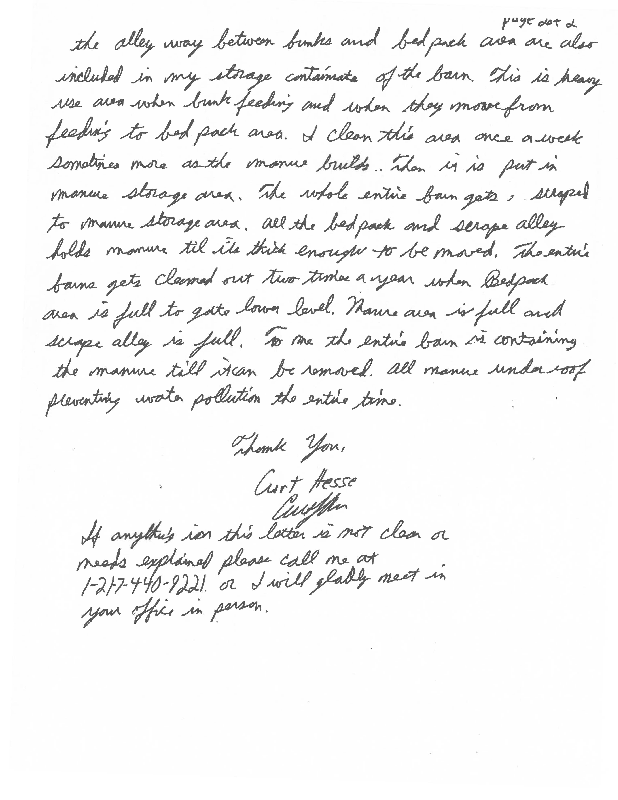 page 2 of 2
the alley way between bunks and bedpack area are also
included in my storage containmate of the barn. This is heavy
use area when bunk feeding and when they move from
feeding to bed pack area. I clean this area once a week
sometimes more as the manure builds.. Then is is put in
manure storage area. The whole entire barn gets, scraped
to manure storage area. All the bedpack and scrape alley
holds manure til its thick enough to be moved. The entire
barns gets cleaned out two times a year when Bedpack
area is full to gate lower level. Manure area is full and
scrape alley is full. To me the entire barn is containing
the manure till it can be removed. All manure under roof
preventing water pollution the entire time.
Thank You,
Curt Hesse
If anything ion this letter is not clear or
needs explained please call me at
1-217-440-9221. or I will gladly meet in
your office in person.